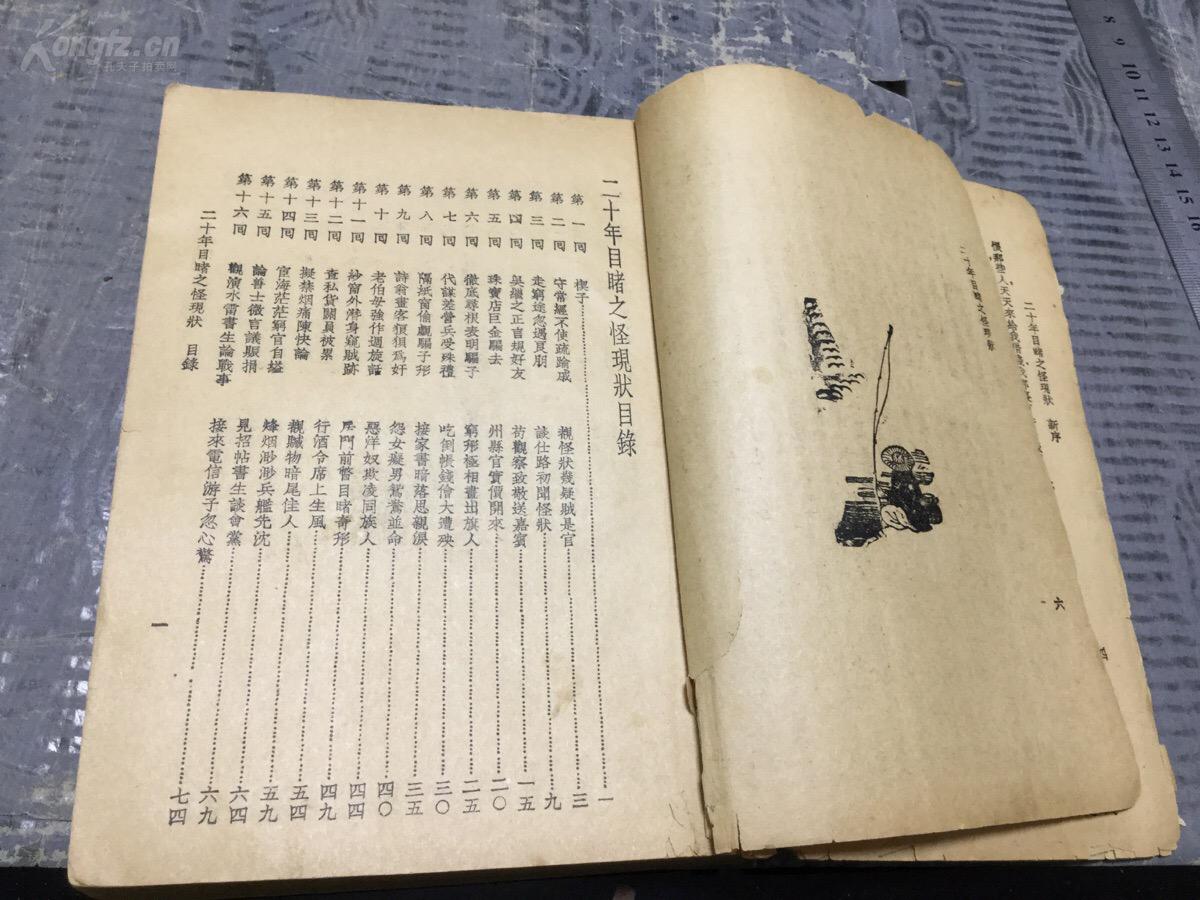 Kongfz.cn
孔夫子拍卖网
二十年目睹之怪現狀目錄
第一回 楔子 一
第二回 守常經不使疏踰戚 覩怪狀幾疑賊是官 三
第三回 走窮途忽遇良朋 談仕路初聞怪狀 九
第四回 吳繼之正言規好友 苟觀察致敬送嘉賓 一五
第五回 珠寶店巨金騙去 州縣官實價開來 二〇
第六回 徹底尋根表明騙子 窮形極相畫出旗人 二五
第七回 代謀差營兵受殊禮 吃倒帳錢儈大遭殃 三〇
第八回 隔紙窗偷覷騙子形 接家書暗落思親淚 三五
第九回 詩翁畫客狼狽爲奸 怨女癡男鴛鴦並命 四〇
第十回 老伯母強作週旋話 惡洋奴欺凌同族人 四四
第十一回 紗窗外潛身窺賊跡 房門前瞥目睹奇形 四九
第十二回 查私貨關員被累 行酒令席上生風 五四
第十三回 擬禁烟痛陳快論 覩贓物暗尾佳人 五九
第十四回 宦海茫茫窮官自縊 烽烟渺渺兵艦先沈 六四
第十五回 論善士微言議賑捐 見招帖書生談會黨 六九
第十六回 觀演水雷書生論戰事 接來電信游子忽心驚 七四
二十年目睹之怪現狀 目錄
一
二十年目睹之怪現狀 新序
六
二十年目睹之怪現狀
四
8 9 10 11 12 13 14 15 16